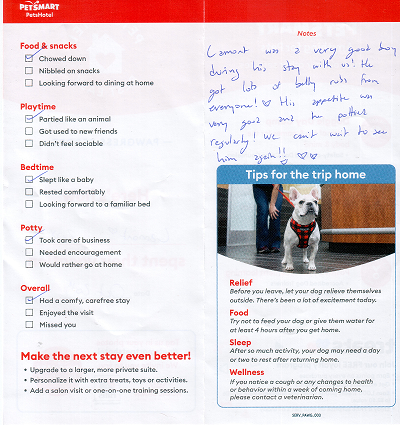 PETSMART
PetsHotel
Food & snacks
Chowed down
Nibbled on snacks
Looking forward to dining at home
Playtime
Partied like an animal
Got used to new friends
Didn't feel sociable
Bedtime
Slept like a baby
Rested comfortably
Looking forward to a familiar bed
Potty
Took care of business
Needed encouragement
Would rather go at home
Overall
Had a comfy, carefree stay
Enjoyed the visit
Missed you
Make the next stay even better!
• Upgrade to a larger, more private suite.
• Personalize it with extra treats, toys or activities.
• Add a salon visit or one-on-one training sessions.
Notes
Lamont was a very good boy
during his stay with us! He
got lots of belly rubs from
everyone! ♡ His appetite was
very good and he potties
regularly! We can't wait to see
him again!! ♡♡
Tips for the trip home
Relief
Before you leave, let your dog relieve themselves
outside. There's been a lot of excitement today.
Food
Try not to feed your dog or give them water for
at least 4 hours after you get home.
Sleep
After so much activity, your dog may need a day
or two to rest after returning home.
Wellness
If you notice a cough or any changes to health
or behavior within a week of coming home,
please contact a veterinarian.